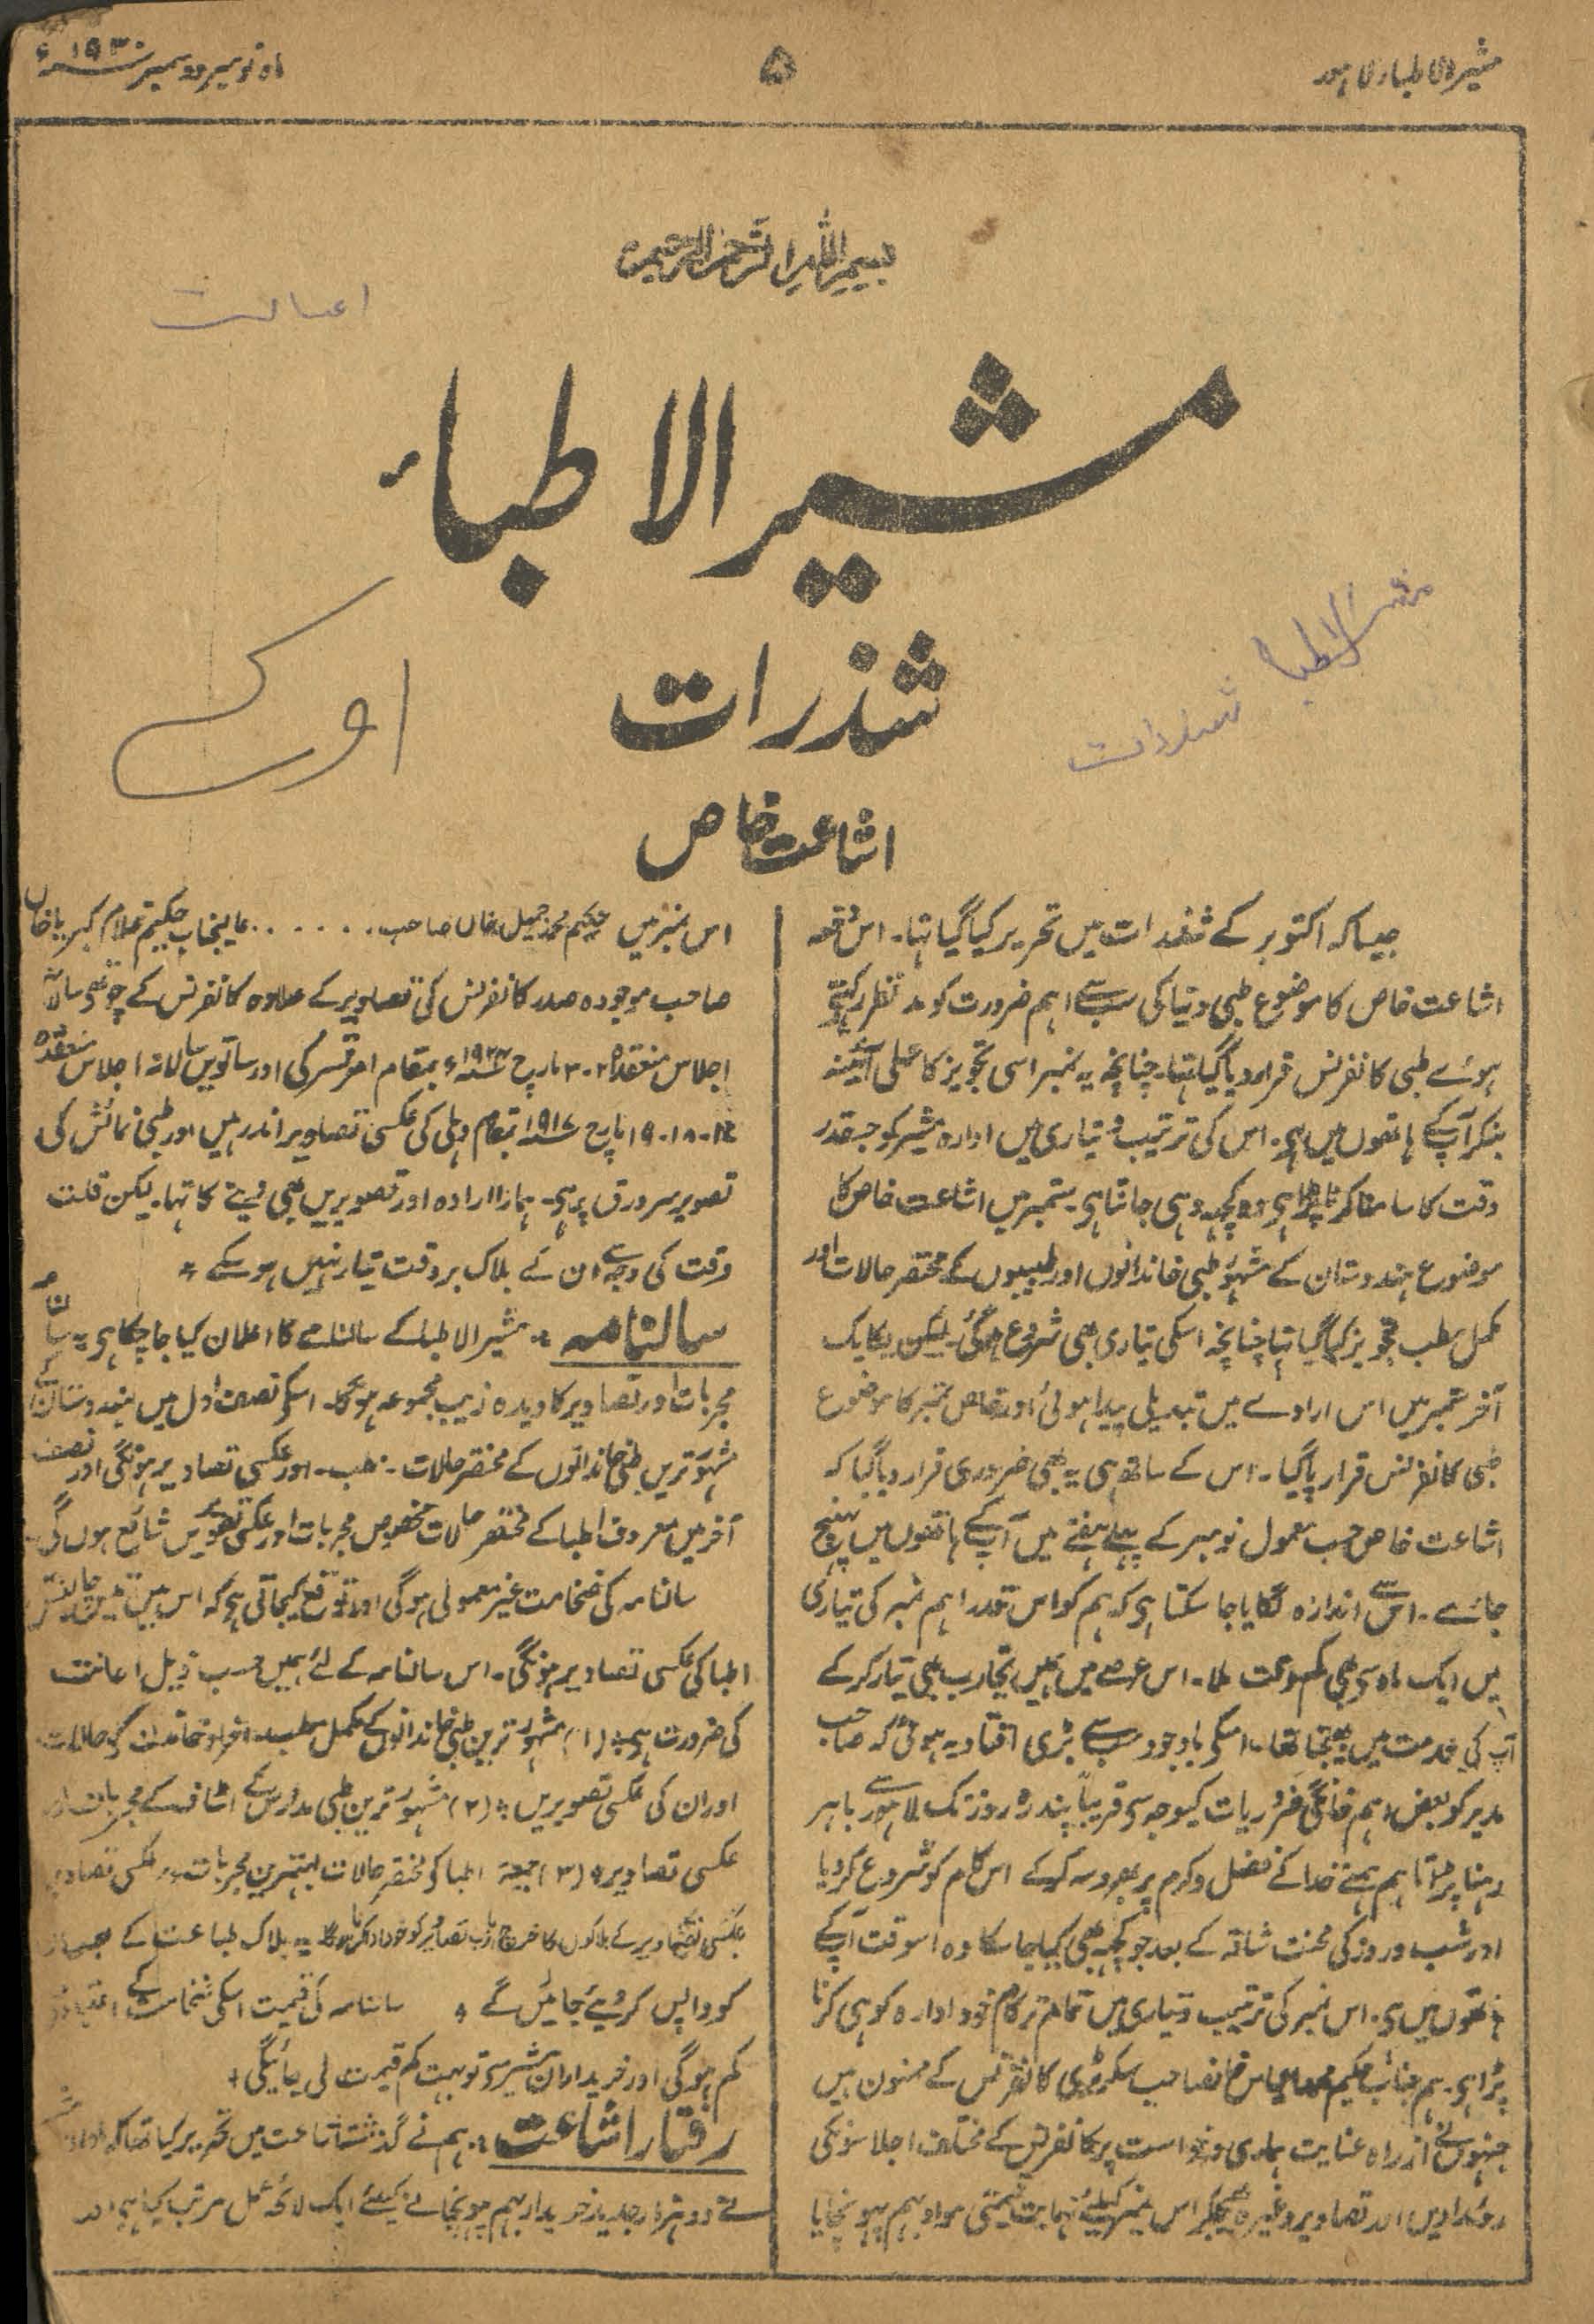 مشیر الاطباء لاہور
۵
ماہ نومبر و دسمبر ۱۹۳۰ء
بسم اللہ الرحمن الرحیم
اعانت
مشیر الاطباء
مشیر الاطباء
شذرات
شذرات
اشاعت خاص
جیسا کہ اکتوبر کے شذرات میں تحریر کیا گیا تہا۔ اس دفعہ
اشاعت خاص کا موضوع طبی دنیا کی سب سے اہم ضرورت کو مد نظر رکہتے
ہوئے طبی کانفرنس قرار دیا گیا تہا۔ چنانچہ یہ نمبر اسی تجویز کا عملی آئینہ
بنکر آپکے ہاتھوں میں ہی۔ اس کی ترتیب و تیاری میں ادارہ مشیر کو جسقدر
دقت کا سامنا کرنا پڑا ہی وہ کچھ وہی جانتا ہی۔ ستمبر میں اشاعت خاص کا
موضوع ہندوستان کے مشہور طبی خاندانوں اور طبیبوں کے مختصر حالات اور
مکمل مطب تجویز کیا گیا تہا چنانچہ اسکی تیاری بھی شروع ہوگئی۔ لیکن یکایک
آخر ستمبر میں اس ارادے میں تبدیلی پیدا ہوئی اور خاص نمبر کا موضوع
طبی کانفرنس قرار پاگیا۔ اس کے ساتھ ہی یہ بھی ضروری قرار دیا گیا کہ
اشاعت خاص حسب معمول نومبر کے پہلے ہفتے میں آپکے ہاتھوں میں پہنچ
جائے۔ اس سے اندازہ لگایا جا سکتا ہی کہ ہم کو اس قدر اہم نمبر کی تیاری
میں ایک ماہ سی بھی کم وقت ملا۔ اس عرصے میں ہمیں تجارب بھی تیار کر کے
آپ کی خدمت میں بھیجنا تھا۔ اسکے باوجود سب سے بڑی افتاد یہ ہوئی کہ صاحب
مدیر کو بعض اہم خانگی ضروریات کیوجہ سی قریباً پندرہ روز تک لاہور سے باہر
رہنا پڑا تا ہم ہمنے خدا کے فضل و کرم پر بھروسہ کر کے اس کام کو شروع کر دیا
اور شب و روز کی محنت شاقہ کے بعد جو کچھ بھی کیا جا سکا وہ اسوقت آپکے
ہاتھوں میں ہی۔ اس نمبر کی ترتیب و تیاری میں تمام تر کام خود ادارہ کو ہی کرنا
پڑا ہی۔ ہم جناب حکیم محمد الیاس خانصاحب سکرٹری کانفرنس کے ممنون ہیں
جنہوں نے ازراہ عنایت ہماری درخواست پر کانفرنس کے مختلف اجلاسونکی
روئدادیں اور تصاویر وغیرہ بھیجکر اس نمبر کیلئے نہایت قیمتی مواد بہم پہونچایا
اس نمبر میں حکیم محمد جمیل خاں صاحب ...... عالیجناب حکیم غلام کبریا خاں
صاحب موجودہ صدر کانفرنس کی تصاویر کے علاوہ کانفرنس کے چوتھی سالانہ
اجلاس منعقدہ مارچ بمقام امرتسر کی اور ساتویں سالانہ اجلاس منعقدہ
مارچ ۱۹۱۷ء بمقام دہلی کی عکسی تصاویر اندر ہیں اور طبی نمائش کی
تصویر سرورق پر ہی۔ ہمارا ارادہ اور تصویریں بھی دینے کا تہا۔ لیکن قلت
وقت کی وجہ سے ان کے بلاک بر وقت تیار نہیں ہو سکے۔
سالنامہ:۔ مشیر الاطبا کے سالنامے کا اعلان کیا جا چکا ہی۔ یہ سالنامہ
مجربات اور تصاویر کا دیدہ زیب مجموعہ ہوگا۔ اسکے نصف اول میں ہندوستان کے
مشہور ترین طبی خاندانوں کے مختصر حالات۔ مطب۔ اور عکسی تصاویر ہونگی اور نصف
آخر میں معروف اطبا کے مختصر حالات مخصوص مجربات اور عکسی تصویریں شائع ہوں گی۔
سالنامہ کی ضخامت غیر معمولی ہوگی اور توقع کیجاتی ہی کہ اس میں
اطبا کی عکسی تصاویر ہونگی۔ اس سالنامہ کے لئے ہمیں حسب ذیل اعانت
کی ضرورت ہی:۔ (۱) مشہور ترین طبی خاندانوں کے مکمل مطب۔ افراد خاندان کے حالات
اور ان کی عکسی تصویریں۔ (۲) مشہور ترین طبی مدارس کے اسٹاف کے مجربات اور
عکسی تصاویر۔ (۳) جمیعۃ اطبا کے مختصر حالات بہترین مجربات اور عکسی تصاویر
عکسی تصاویر کے بلاکوں کا خرچ ارباب تصاویر کو خود ادا کرنا ہوگا۔ یہ بلاک طباعت کے بعد ان
کو واپس کر دیئے جائیں گے۔ سالنامہ کی قیمت اسکی ضخامت کے اعتبار سے
کم ہوگی اور خریداران مشیر سی تو بہت کم قیمت لی جائیگی۔
رفتار اشاعت:۔ ہم نے گذشتہ اشاعت میں تحریر کیا تھا کہ ادارہ
نے دو ہزار جدید خریدار بہم پہونچانے کیلئے ایک لائحہ عمل مرتب کیا ہی اور